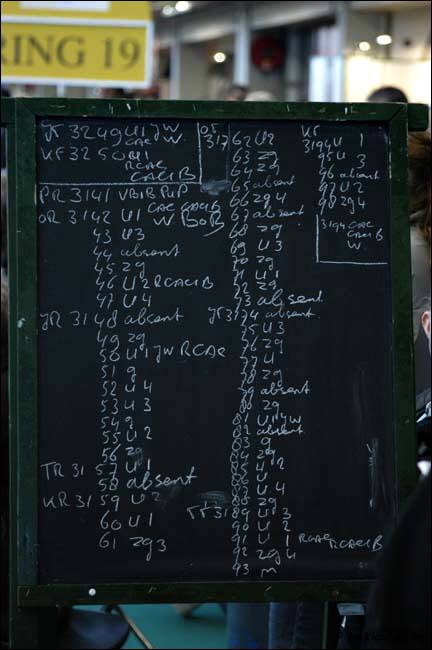 RING 19
JK 3249 U1 JW
CAC W.
KF 3250 U1
RCAC
CACIB
PR 3141 VBIB PUP
OR 3142 U1 CAC CACIB
W BOB
43 U3
44 absent
45 zg
46 U2 RCACIB
47 U4
JR 3148 absent
49 zg
50 U1 JW RCAC
51 g
52 U4
53 U3
54 g
55 U2
56 zg
TR 3157 U1
58 absent
KR 3159 U2
60 U1
61 zg3
62 U2
63 zg
64 zg
65 absent
66 zg4
67 absent
68 zg
69 U3
70 zg
71 U1
72 zg
73 absent
JR 3174 absent
75 U3
76 zg
77 U
78 zg
79 absent
80 zg
81 U1 JW
82 absent
83 g
84 zg
85 U2
86 U
87 U4
88 zg
89 U3
90 U2
91 U1 RCAC RCACIB
92 zg4
93 m
KF
3194 U1
95 U3
96 absent
97 U2
98 zg4
3194 CAC
CACIB
W